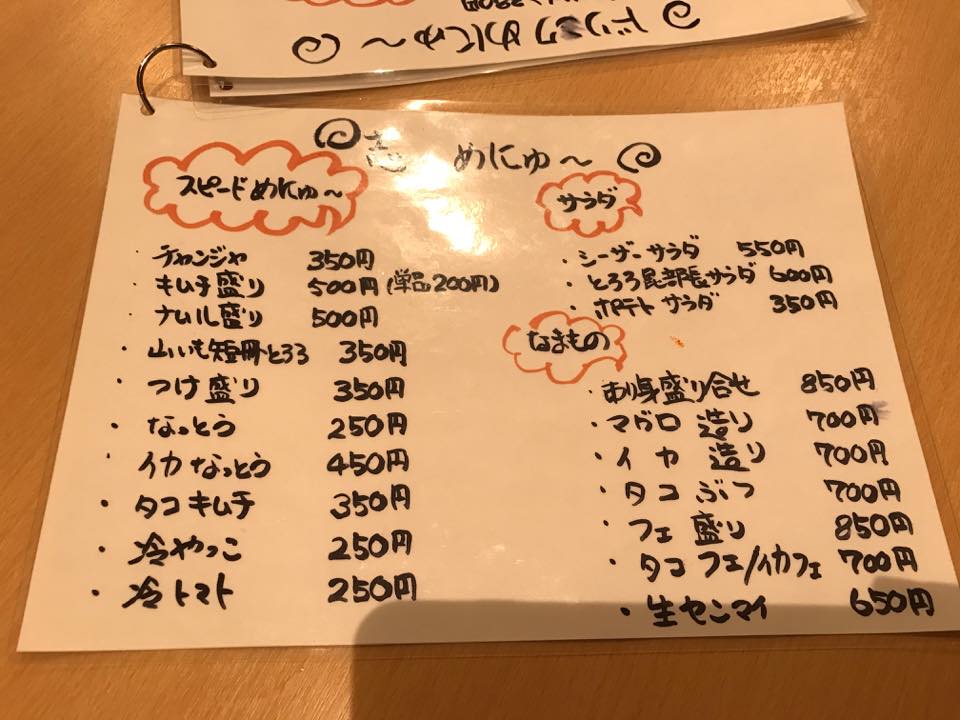 ドリンクめにゅ～
めにゅ～
スピードめにゅ～
チャンジャ 350円
・キムチ盛り 500円(単品200円)
ナムル盛り 500円
・山いも短冊とろろ 350円
・つけ盛り 350円
・なっとう 250円
・イカなっとう 450円
・タコキムチ 350円
・冷やっこ 250円
・冷トマト 250円
サラダ
・シーザーサラダ 550円
・とろろ昆布長サラダ 600円
・ポテトサラダ 350円
なまもの
・刺身盛り合せ 850円
・マグロ造り 700円
・イカ造り 700円
・タコぶつ 700円
・フェ盛り 850円
・タコフェ/イカフェ 700円
・生センマイ 650円